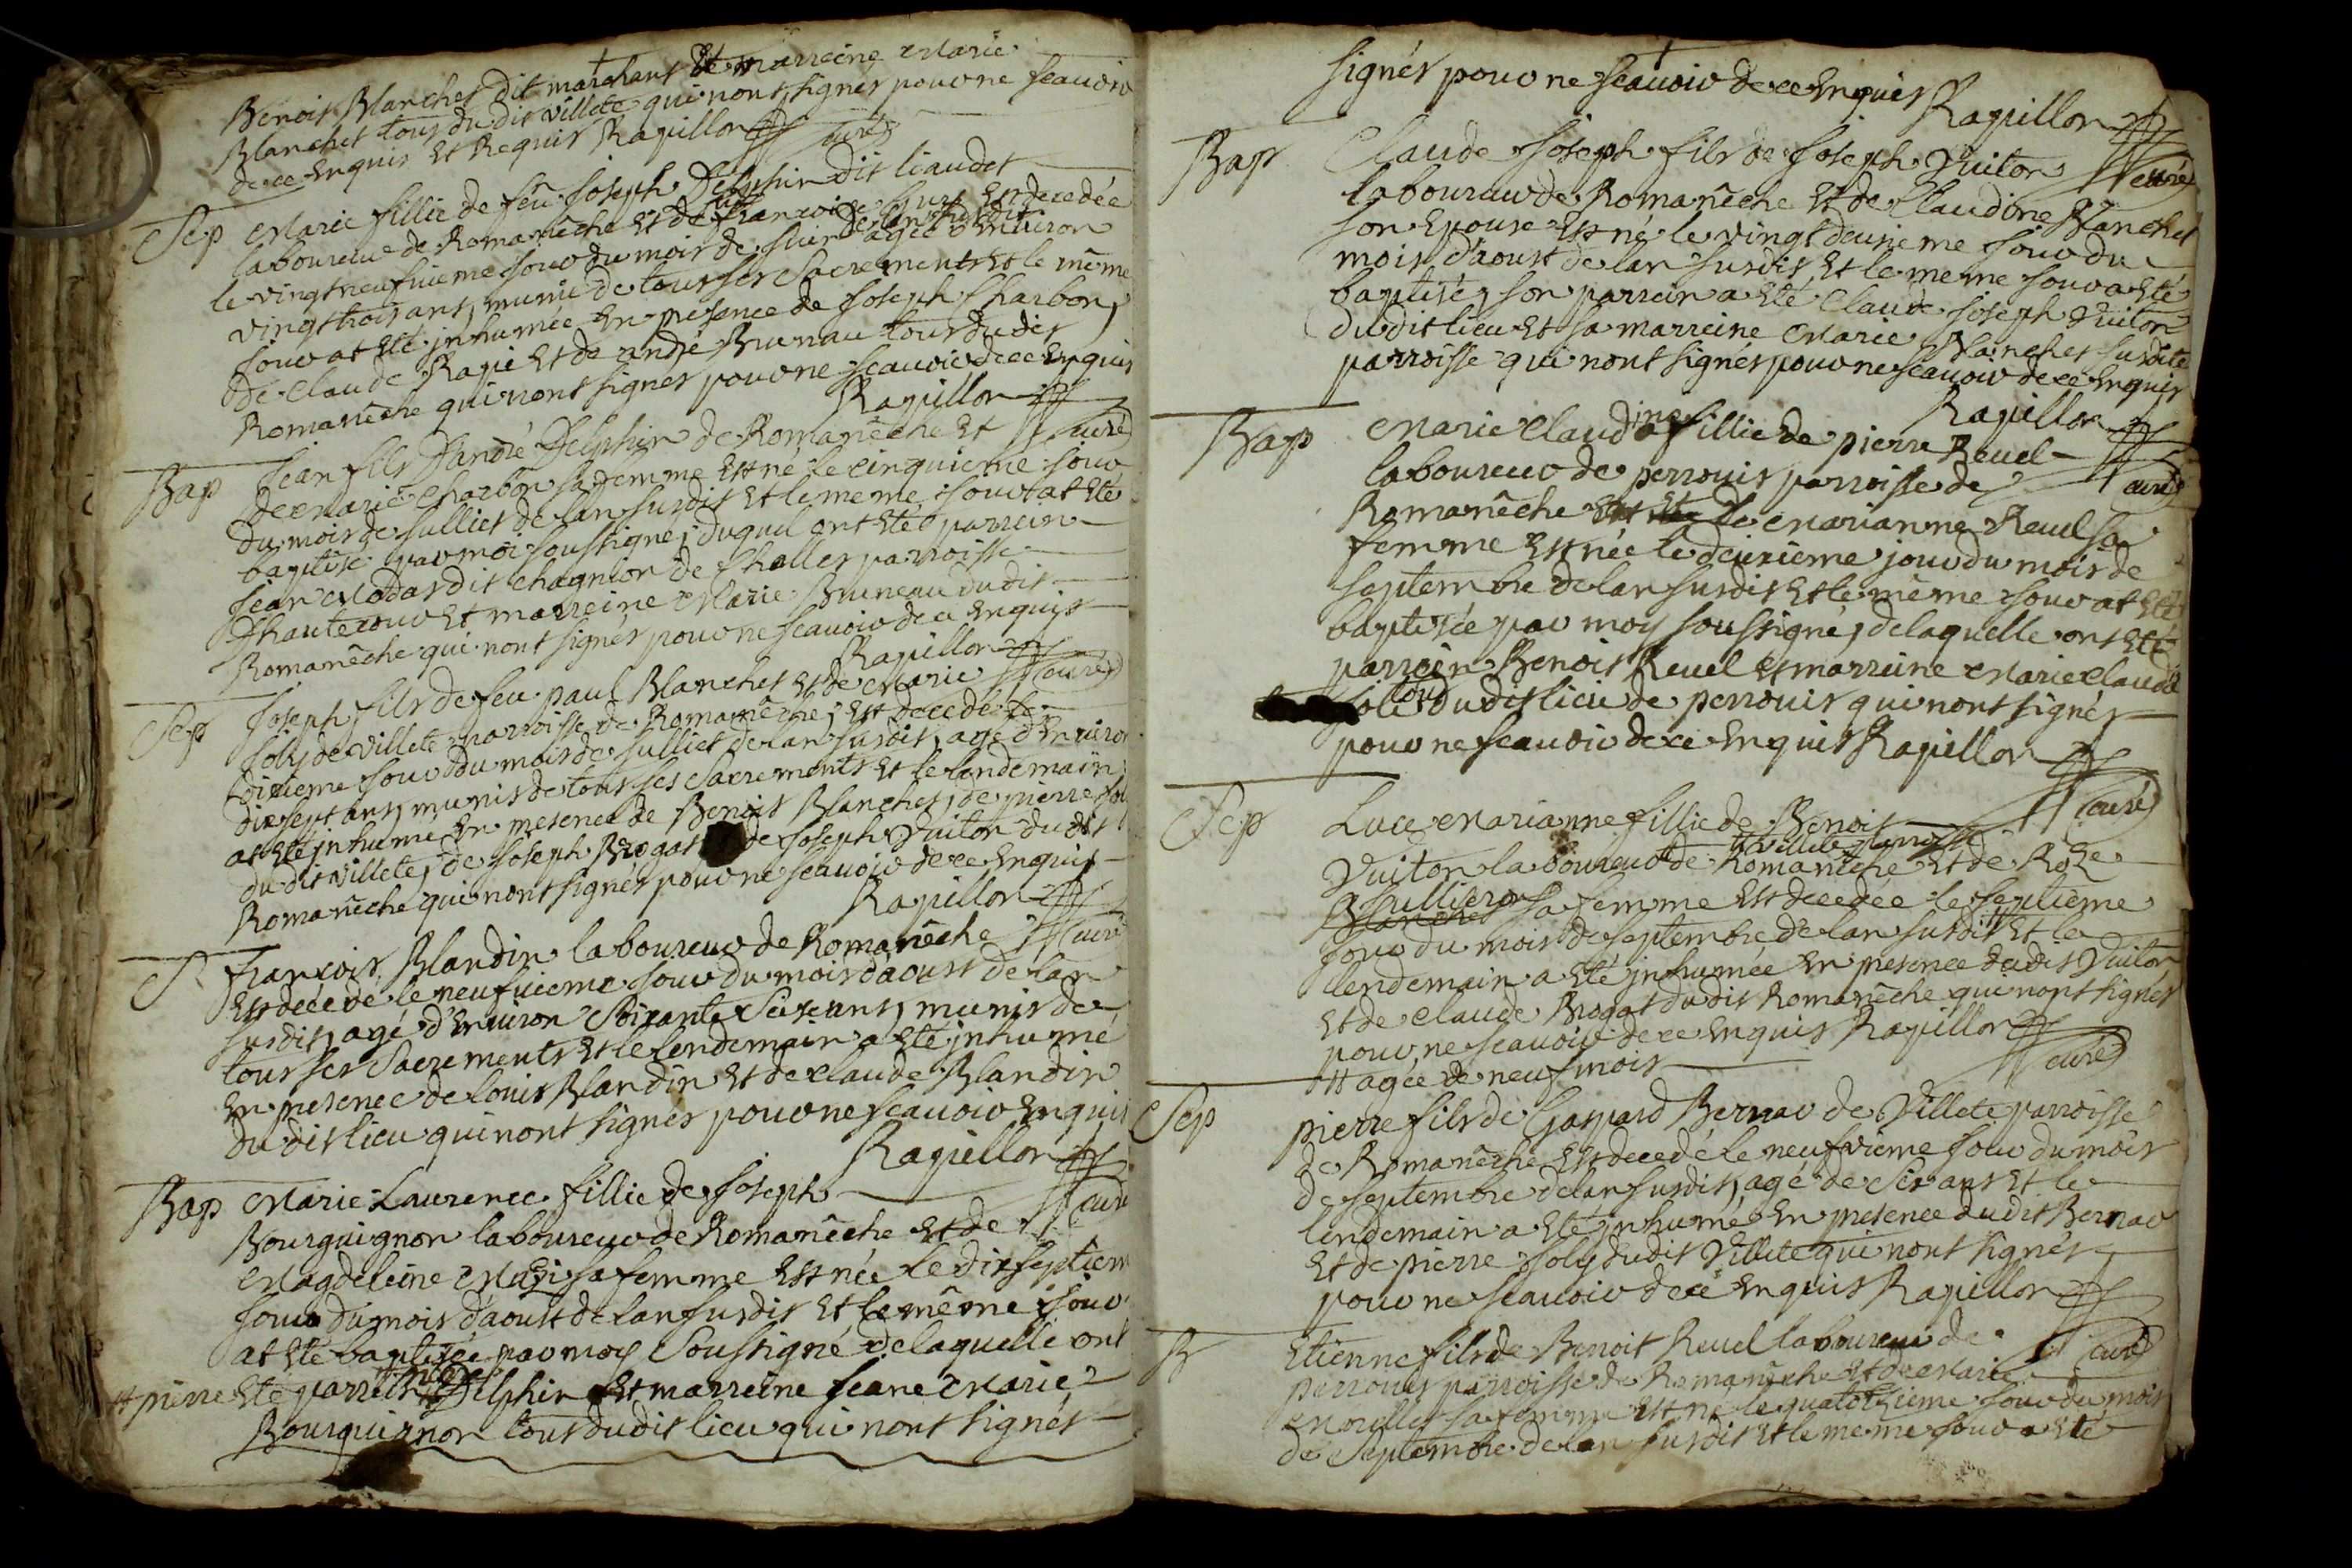 Benoit Blanchet dit marchant Et marreine Marie
Blanchet tous du dit villete qui nont signés pour ne scauoir
de ce Enquis et Requis Rapillon curé
Sep Marie fillie de feû Joseph Delphin dit liaudet
laboureur de Romanêche et de francoise Est decedée
le vingt neufuieme Jour du mois de Juin de lan susdit agée d'Enuiron
vingt trois ans, munie de tous ses Sacrements et le même
Jour at Eté jnhumée En presence de Joseph Charbon,
de Claude Rapi et de andré Brunau tous du dit
Romanêche qui nont signés pour ne scauoir de ce Enquis
Rapillon curé
Bap Jean fils D'andré Delphin de Romanêche et
de Marie Charbon sa femme Est né le cinquieme Jour
du mois de Julliet de lan susdit et le meme Jour at Eté
baptisé par moi soussigné, duquel ont Eté parrein
Jean Modas dit chagnion de Challes parroisse
D'hautecour et marreine Marie Bruneau du dit
Romanêche qui nont signés pour ne scauoir de ce Enquis
Rapillon curé
Sep Joseph fils de feu paul Blanchet et de Marie
Joly de villete parroisse de Romanêche, Est decedé le
dixieme Jour du mois de Julliet de lan susdit, agé d'Enuiron
dix sept ans, munis de tous ses Sacrements et le lendemain
at Eté jnhumé En presence de Benoit Blanchet, de pierre Jol
du dit villete, de Joseph Brogat de Joseph Vuiton du dit
Romanêche qui nont signés pour ne scauoir de ce Enquis
Rapillon curé
S francois Blandin laboureur de Romanêche
Est decedé le neufuieme Jour du mois d'aoust de lan
susdit, agé d'Enuiron Soixante Seize ans, munis de
tous ses Sacrements et le lendemain a Eté jnhumé
En presence de louis Blandin et de claude Blandin
du dit lieu qui nont signés pour ne scauoir Enquis
Rapillon curé
Bap Marie Laurence fillie de Joseph
Bourguignon laboureur de Romanêche et de
Magdeleine sa femme Est née le dix septiem
Jour du mois d'aoust de lan susdit et le même Jour
at Eté baptisée par moy Soussigné de laquelle ont
# pierre Eté parrein # Delphin Et marreine Jeane Marie
Bourguignon tous du dit lieu qui nont signés
signés pour ne scauoir de ce Enquis
Rapillon curé
Bap Claude Joseph fils de Joseph Vuiton
laboureur de Romanêche et de Claudine Blanchet
son Epouse Est né le vingt deuxieme Jour du
mois d'aoust de lan susdit et le meme Jour a Eté
baptisé, son parrein a Eté Claude Joseph Vuiton
du dit lieu et sa marreine Marie Blanchet susdite
parroisse qui nont signés pour ne scauoir de ce Enquis
Rapillon curé
Bap Marie Claudine fillie de pierre Reuel
laboureur de perrouis parroisse de
Romanêche et de Marianne Reuel sa
femme Est née le deuxieme jour du mois de
septembre de lan susdit et le même Jour at Eté
baptisée par moy soussigné, de laquelle ont Eté
parrein Benoit Reuel et marreine Marie claude
Joli tous du dit lieu de perrouis qui nont signés
pour ne scauoir de ce Enquis Rapillon
curé
Sep Luce Marianne fillie de Benoit
Vuiton laboureur de villete parroisse Romanêche et de Roze
Jullieron sa femme Est decedée le septieme
Jour du mois de septembre de lan susdit # et le
lendemain a Eté jnhumée En presence du dit Vuiton
et de claude Brogat du dit Romanêche qui nont signés
pour ne scauoir de ce Enquis Rapillon
# agée de neuf mois curé
Sep pierre fils de Gaspard Bernar de Villete parroisse
de Romanêche Est decedé le neufvieme Jour du mois
de septembre de lan susdit, agé de Six ans et le
lendemain a Eté jnhumé En presence du dit Bernar
et de pierre Joly du dit Villete qui nont signés
pour ne scauoir de ce Enquis Rapillon
curé
B Etienne fils de Benoit Reuel laboureur de
perrouis parroisse de Romanêche et de Marie
sa femme est né le quatorzieme Jour du mois
de Septembre de lan susdit et le meme Jour a Eté